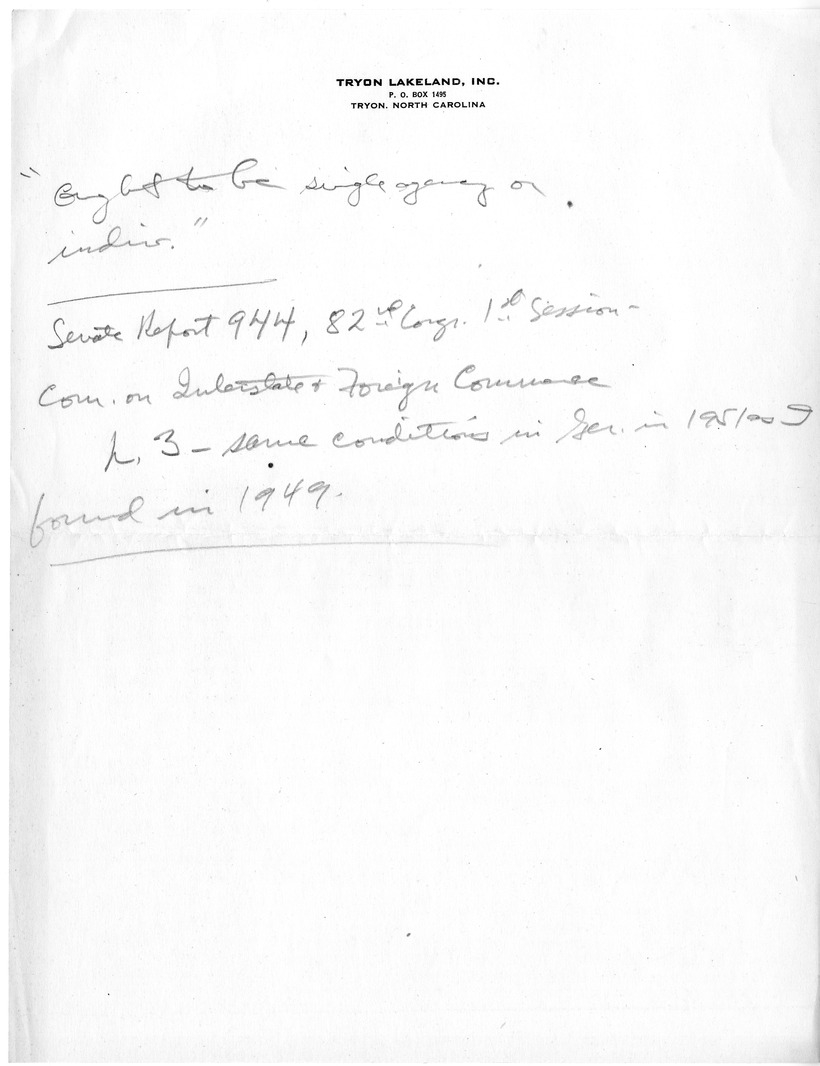 TRYON LAKELAND, INC.
P. O. BOX 1495
TRYON, NORTH CAROLINA
"Ought to be single agency or
indiv."
Senate Report 944, 82nd Congr. 1st Session -
Com. on Interstate & Foreign Commerce
p. 3 - same conditions in Ger. in 1951 as I
found in 1949.